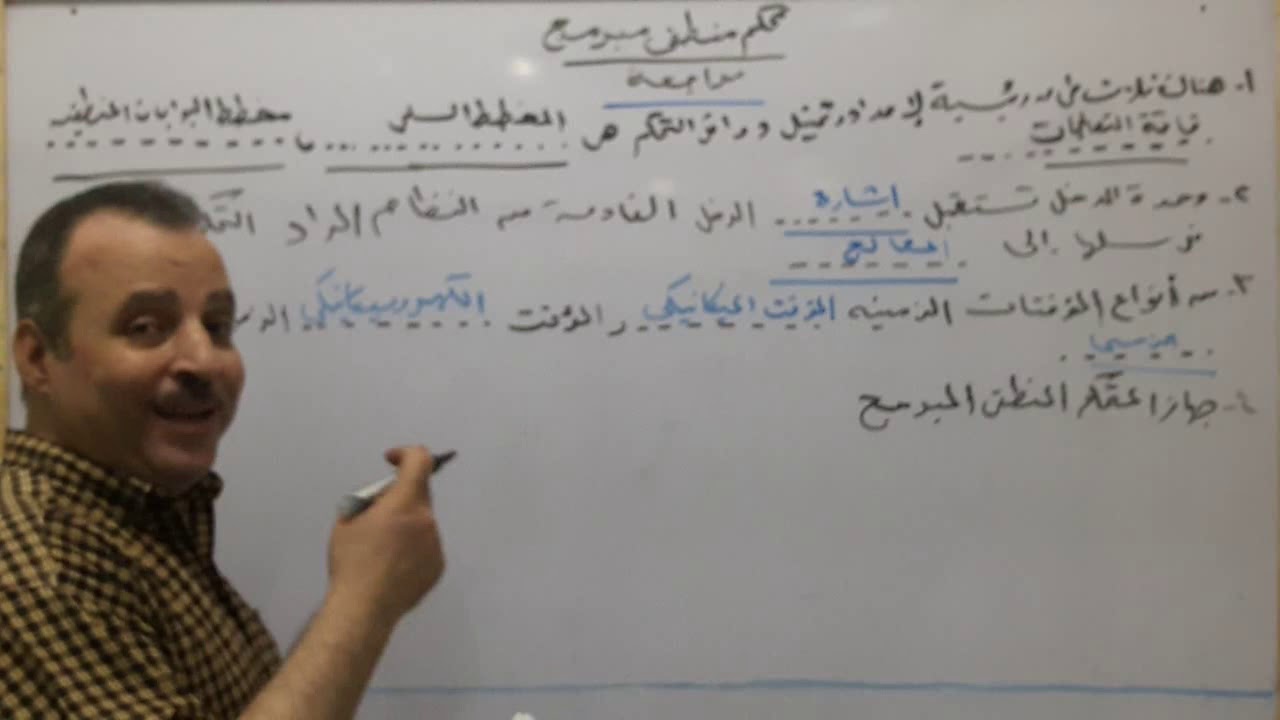 تحكم منطقى مبرمج
مراجعة
١- هناك ثلاث طرق رئيسية لإعداد وتمثيل دوائر التحكم هى المخطط السلمى و مخطط البوابات المنطقيه
قائمة التعليمات
٢- وحدة الدخل تستقبل اشارة الدخل القادمة من النظام المراد
ثم يرسلها إلى المعالج
٣- من أنواع المؤقتات الزمنيه المؤقت الميكانيكى و المؤقت الكهروميكانيكى
٤- جهاز التحكم المنطقى المبرمج